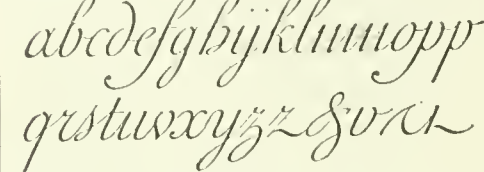 abcdefghijklmnopp
qrstuvwxyzz&